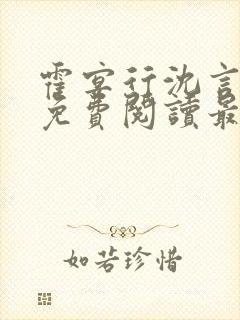 霍宴行沈言
免費閱讀最
如若珍惜